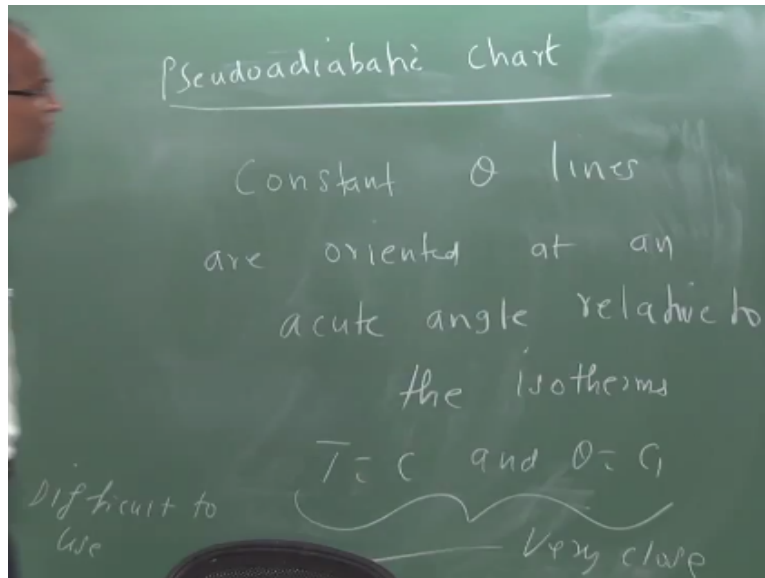 Pseudoadiabatic chart
Constant θ lines
are oriented at an
acute angle relative to
the isotherms
T = C and θ = C₁
Difficult to
use
Very close